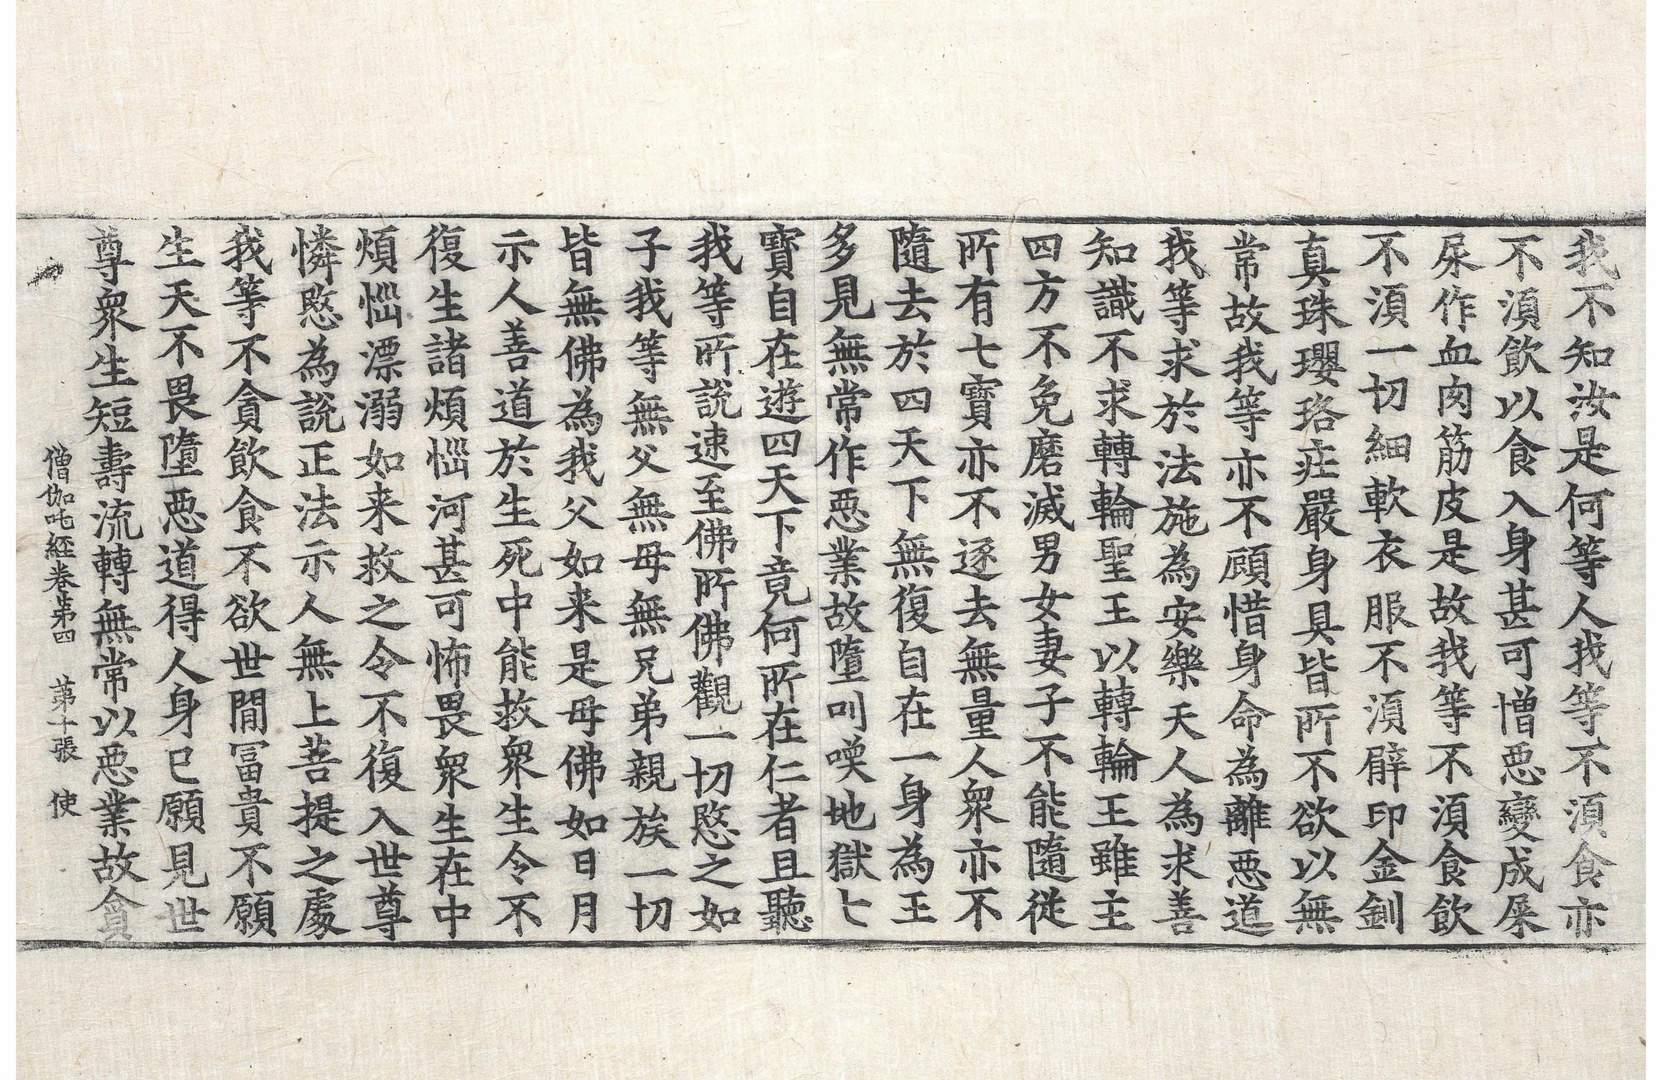 我不知汝是何等人我等不湏食亦
不湏飲以食入身甚可憎惡變成屎
尿作血肉筋皮是故我等不湏食飲
不湏一切細軟衣服不湏臂印金釧
真珠瓔珞莊嚴身具皆所不欲以無
常故我等亦不顧惜身命為離惡道
我等求於法施為安樂天人為求善
知識不求轉輪聖王以轉輪王雖主
四方不免磨滅男女妻子不能隨從
所有七寶亦不逐去無量人衆亦不
隨去於四天下無復自在一身為王
多見無常作惡業故墮叫喚地獄七
寶自在遊四天下竟何所在仁者且聽
我等所說速至佛所佛觀一切愍之如
子我等無父無母無兄弟親族一切
皆無佛為我父如来是母佛如日月
示人善道於生死中能救衆生令不
復生諸煩惱河甚可怖畏衆生在中
煩惱漂溺如来救之令不復入世尊
憐愍為說正法示人無上菩提之處
我等不貪飲食不欲世間冨貴不願
生天不畏墮惡道得人身已願見世
尊衆生短壽流轉無常以惡業故貪
僧伽吒経卷第四 第十張 使